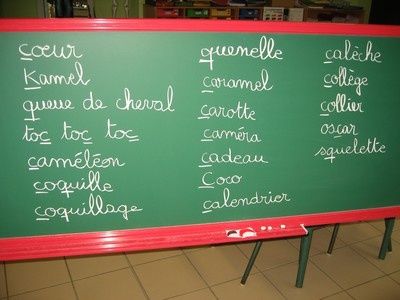 cœur
Kamel
queue de cheval
toc toc toc
caméléon
coquille
coquillage
quenelle
caramel
carotte
caméra
cadeau
Coco
calendrier
calèche
collège
collier
oscar
squelette